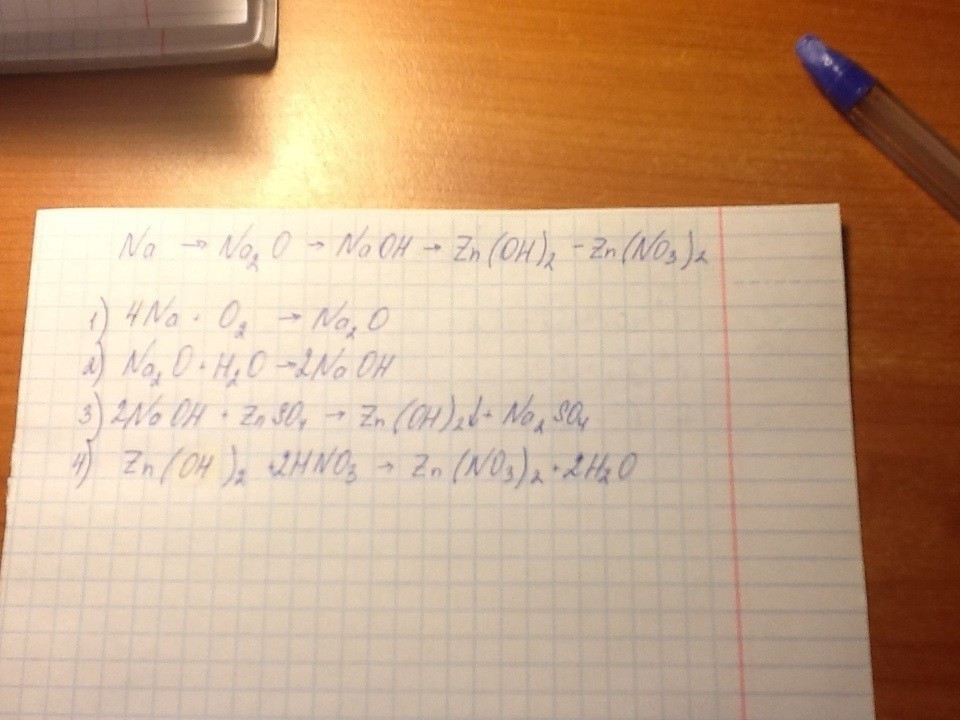 Na → Na₂O → NaOH → Zn(OH)₂ - Zn(NO₃)₂
1) 4Na + O₂ → Na₂O
2) Na₂O + H₂O → 2NaOH
3) 2NaOH + ZnSO₄ → Zn(OH)₂↓ + Na₂SO₄
4) Zn(OH)₂ + 2HNO₃ → Zn(NO₃)₂ + 2H₂O